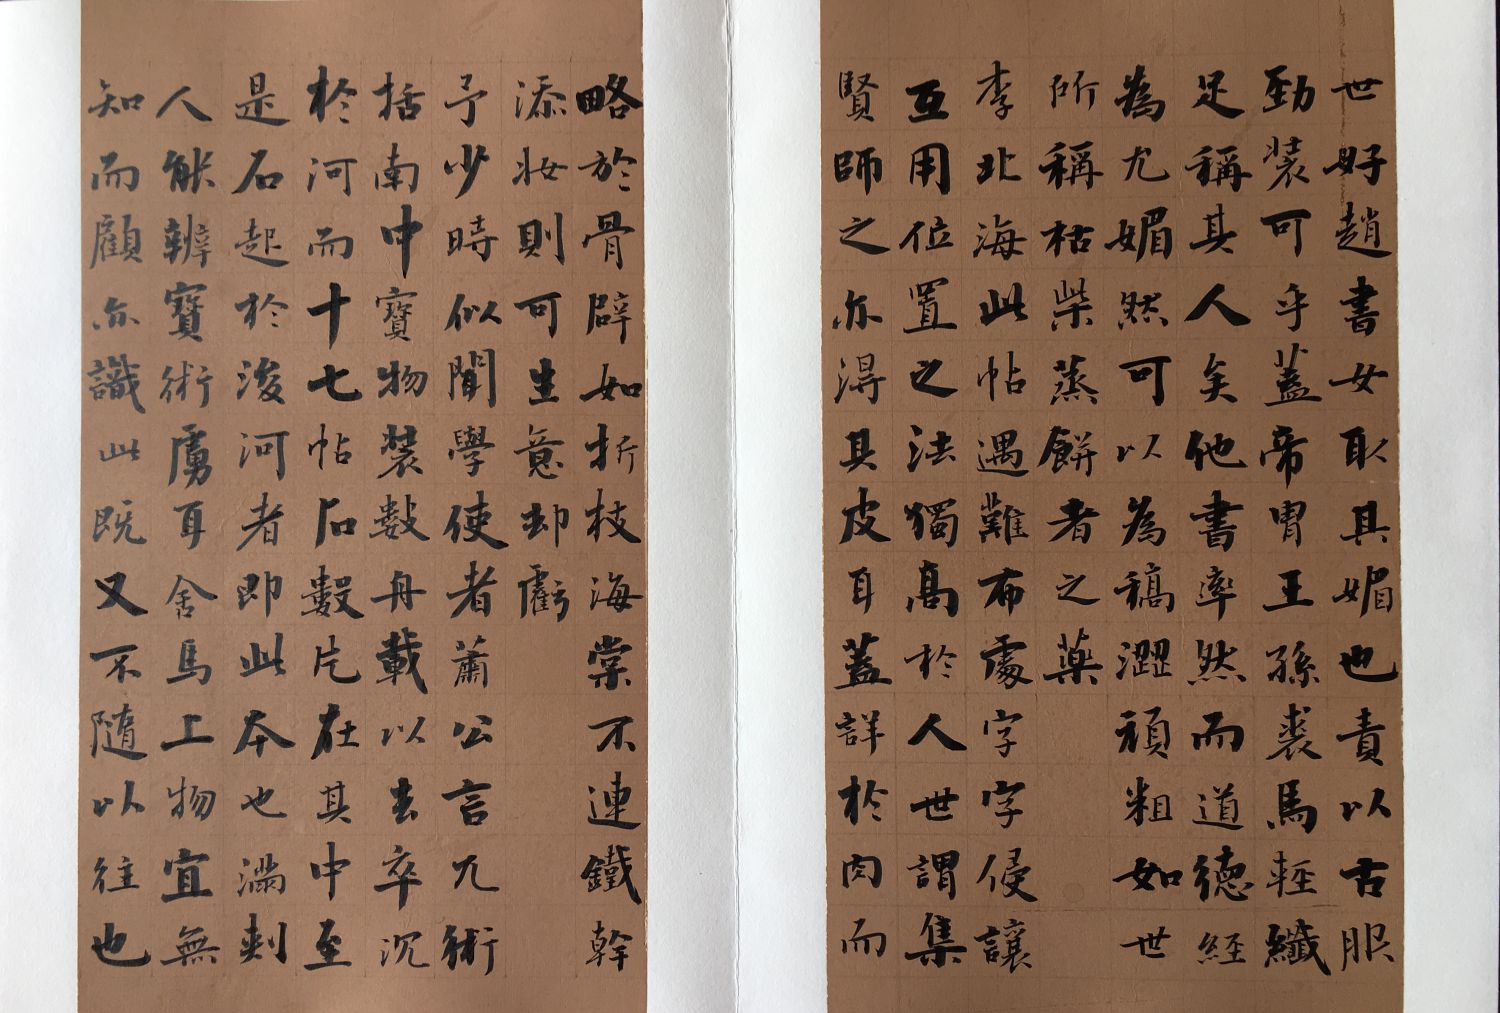 世好趙書女取其媚也責以古服
勁装可乎蓋帝胄王孫裘馬輕纖
足稱其人矣他書率然而道德經
為尤媚然可以為槁澀頑粗如世
所稱枯柴蒸餅者之藥
李北海此帖遇難布處字字侵讓
互用位置之法獨髙於人世謂集
賢師之亦得其皮耳蓋詳於肉而
略於骨辟如折枝海棠不連鐵幹
添妝則可生意却虧
予少時似聞學使者蕭公言兀術
括南中寶物裝數舟載以去卒沉
於河而十七帖石數片在其中至
是石起於浚河者即此本也滿剌
人能辨寶術虜耳舍馬上物宜無
知而顧亦識此既又不隨以往也